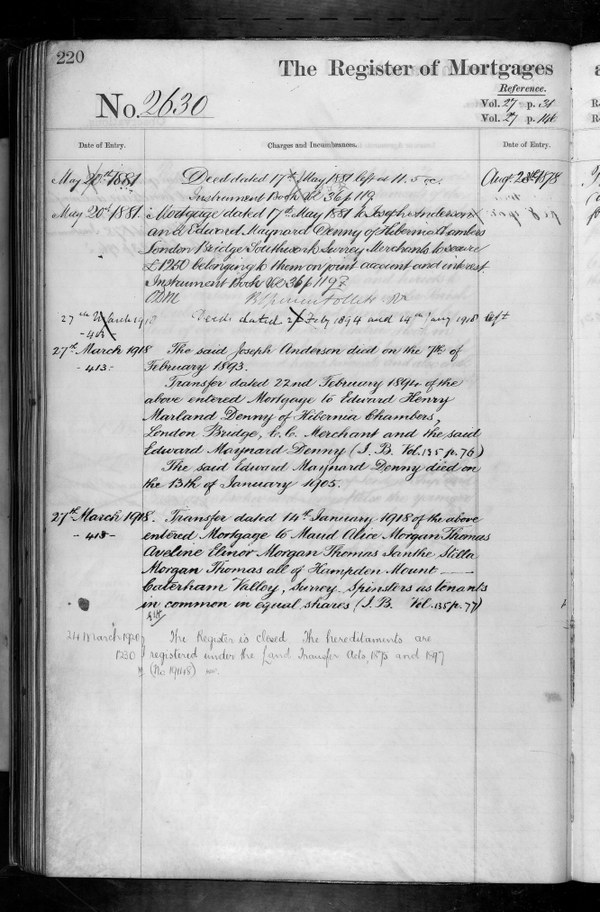 220
The Register of Mortgages
Reference.
No. 2630
Vol. 27 p. 31
Vol. 27 p.
Date of Entry.
Charges and Incumbrances.
Date of Entry.
May 20th 1881
Deed dated 17th May 1881 left at 11.5
Augt 1878
Instrument Book Vol 36 p 119
May 20th 1881.
Mortgage dated 17th May 1881 to Joseph Anderson
and Edward Maynard Denny of Hibernia Chambers
London Bridge Southwark Surrey Merchants to secure
£1250 belonging to them on joint account and interest
Instrument Book Vol 36 p 119
27th March 1918
Deeds dated 22 Feby 1894 and 14th Jany 1918 left
27th March 1918
The said Joseph Anderson died on the 7th of
- 413 -
February 1893.
Transfer dated 22nd February 1894 of the
above entered Mortgage to Edward Henry
Marland Denny of Hibernia Chambers,
London Bridge, E.C. Merchant and the said
Edward Maynard Denny (I. B. Vol. 135 p. 76)
The said Edward Maynard Denny died on
the 13th of January 1905.
27th March 1918.
Transfer dated 14th January 1918 of the above
- 413 -
entered Mortgage to Maud Alice Morgan Thomas
Aveline Elinor Morgan Thomas Ianthe Stella
Morgan Thomas all of Hampden Mount
Caterham Valley, Surrey Spinsters as tenants
in common in equal shares (I. B. Vol. 135 p. 77)
24 March 1920
The Register is closed. The hereditaments are
1230
registered under the Land Transfer Acts, 1875 and 1897